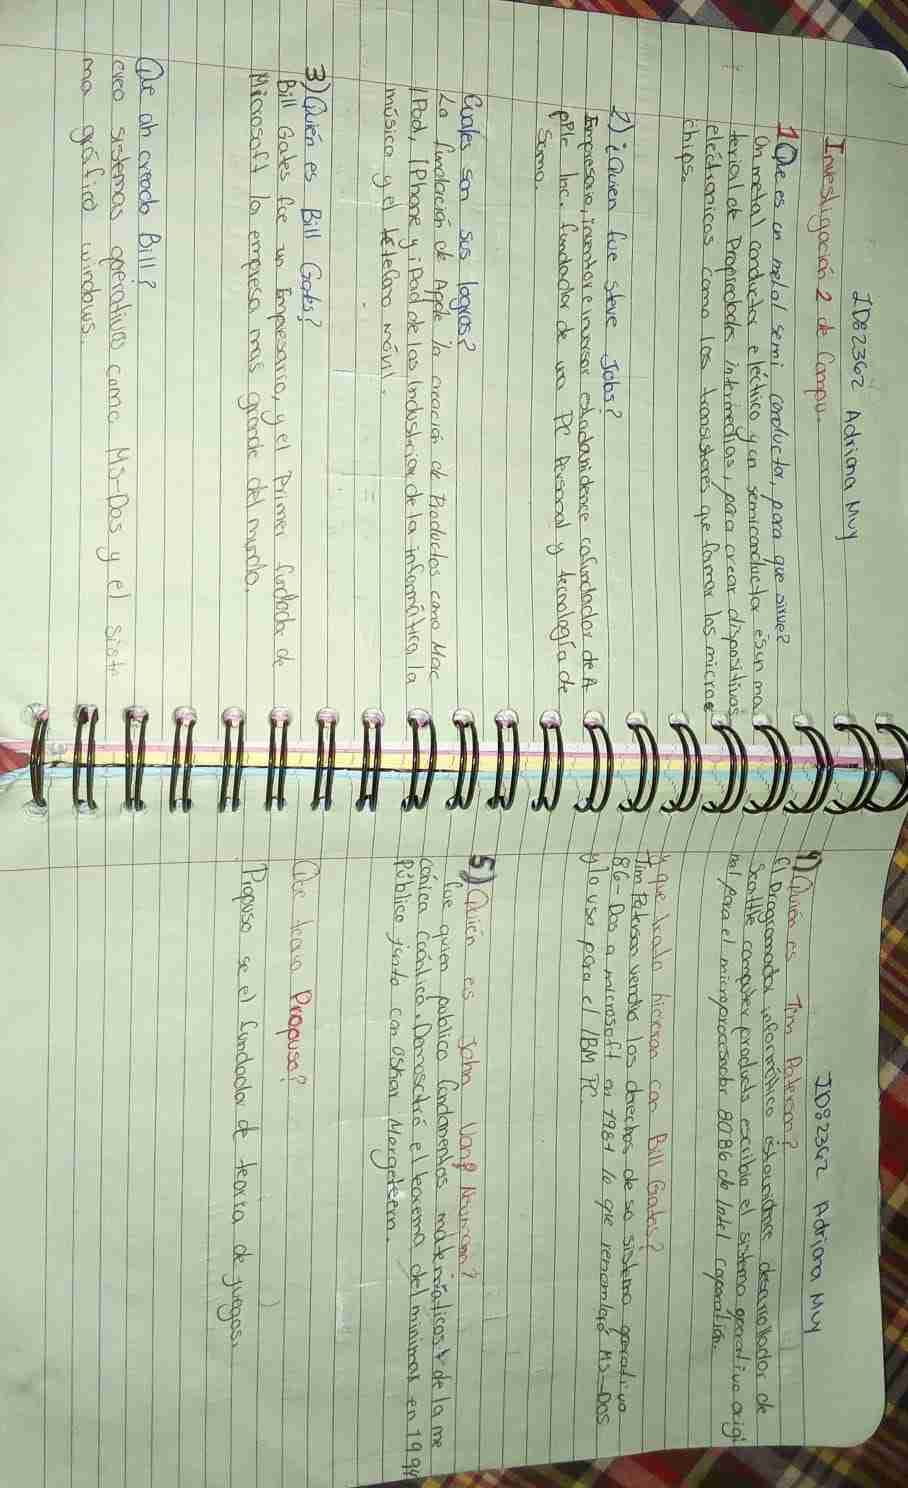 ID82362 Adriana Muy
Investigación 2 de Compu.
1 Que es un metal semi conductor, para que sirve?
Un metal conductor eléctrico y un semiconductor es un ma
terial de Propiedades intermedias, para crear dispositivos
eléctronicos como los transistores que forman los micros
chips.
2) ¿Quien fue steve Jobs?
Empresario, inventor e inversor estadounidence cofundador de A
pple Inc. fundador de una PC Personal y tecnología de
Cuales son sus logros?
La fundación de Apple la creación de Productos como Mac
iPod, iPhone y iPad de las Industrias de la informática, la
música y el teléfono móvil.
3) Quién es Bill Gates?
Bill Gates fue un Empresario, y el Primer fundador de
Microsoft la empresa mas grande del mundo.
Que ah creado Bill?
creo sistemas operativos como MS-Dos y el siste
ma gráfico windows.
ID82362 Adriana Muy
4) Quién es Tim Paterson?
El Programador informático estounidence desarrollador de
Seattle computer products escribio el sistema operativo origi
nal para el microprocesador 8086 de Intel coporation.
y que trato hicieron con Bill Gates?
Tim Paterson vendio los derechos de su sistema operativo
86-Dos a microsoft en 1981 lo que renombró MS-DOS
y lo uso para el IBM PC.
5) Quién es John Von Neumann?
fue quien publico fundamentos matemáticos de la me
cánica cuántica. Demostró el teorema del minimax en 1994
público junto con Oskar Morgestern.
Que teoria Propuso?
Propuso se el fundador de teoria de juegos.